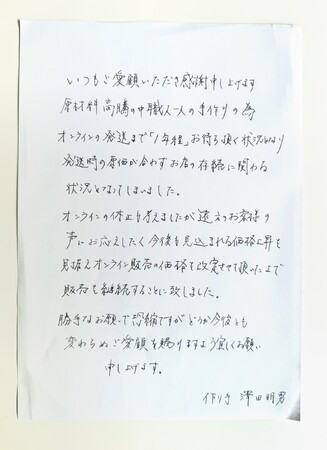 いつもご愛顧いただき感謝申し上げます
原材料高騰の中職人一人の手作りの為
オンラインの発送まで「1年程」お待ち頂く状況となり
発送時の原価が合わずお店の存続に関わる
状況となってしまいました。
オンラインの休止も考えましたが遠方のお客様の
声にお応えしたく今後も見込まれる価格上昇を
見据えオンライン販売の価格を改定させて頂いた上で
販売を継続することに致しました。
勝手なお願いで恐縮ですがどうか今後とも
変わらぬご愛顧を賜りますよう宜しくお願い
申し上げます。
作り手 澤田明男